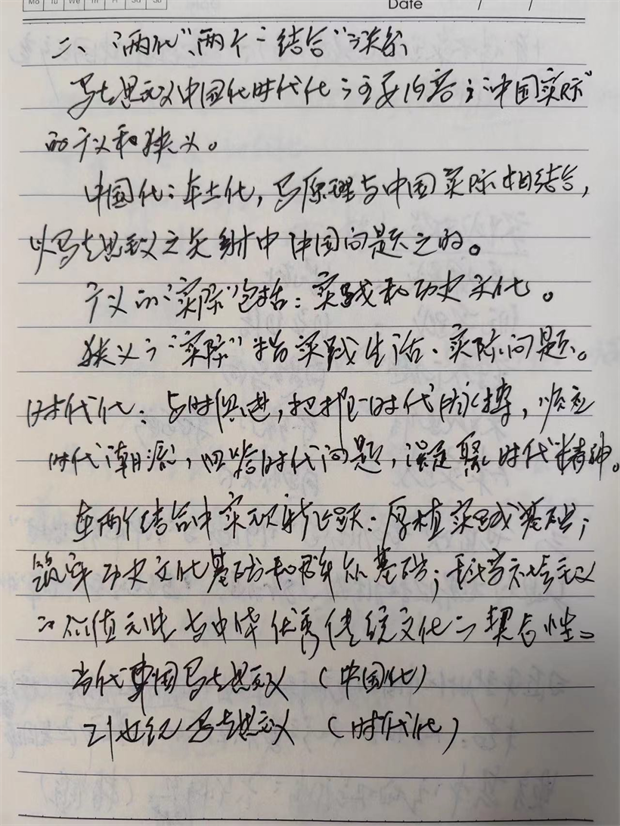 Mo Tu We Th Fr Sa Su
Date / /
二、“两化”、“两个‘结合’”之关系
马克思主义中国化时代化之主要内容之“中国实际”
的广义和狭义。
中国化：本土化，马原理与中国实际相结合，
以马克思主义之矢射中中国问题之的。
广义的“实际”包括：实践和历史文化。
狭义之“实际”指实践生活、实际问题。
时代化：与时俱进，把握时代脉搏，顺应
时代潮流，回答时代问题，凝聚时代精神。
在两个结合中实现新飞跃：厚植实践基础；
筑牢历史文化基础和群众基础；科学社会主义
之价值元性与中华优秀传统文化之契合性。
当代中国马克思主义（中国化）
21世纪马克思主义（时代化）